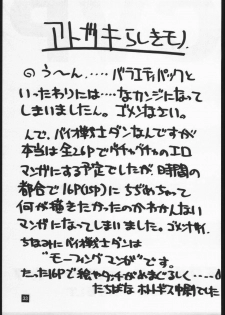 アトガキらしきモノ
のう〜ん、‥‥バラエティパックと
いったわりには‥‥なカンジになって
しまいましたん。ゴメンなさい。
んで、バイオ戦士ダンなんですが
本当は全26Pでグチャグチャのエロ
マンガにする予定でしたが、日時間の
都合で16P(15P)にちぢめちゃって
何が描きたかったのかわかんない
マンガになってしまいました。ゴメンナサイ。
ちなみにバイオ戦士ダンは
"モーフィングマンガ"です。
たった16Pで絵やタッチがめまぐるしく‥‥
たちばな ホトトギス でした
20